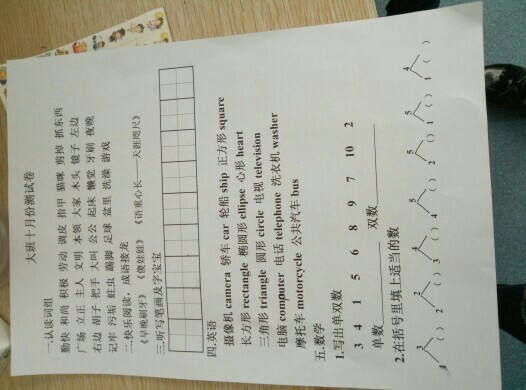 大班十月份测试卷
一.认读词组
勤快 和尚 积极 劳动 调皮 指甲 猫咪 剪掉 抓东西
广场 立正 主人 文明 本领 大家 木头 镜子 左边
右边 胡子 把手 大叫 公公 起床 懒觉 牙刷 夜晚
记牢 污垢 蛀虫 踢脚 足球 盆里 洗澡 游戏
二.快乐阅读、成语接龙
《早晚刷牙》 《傻娃娃》 《语重心长——天涯咫尺》
三.听写笔画及字宝宝
四.英语
摄像机 camera 轿车 car 轮船 ship 正方形 square
长方形 rectangle 椭圆形 ellipse 心形 heart
三角形 triangle 圆形 circle 电视 television
电脑 computer 电话 telephone 洗衣机 washer
摩托车 motorcycle 公共汽车 bus
五.数学
1.写出单双数
3 4 1 5 6 8 9 7 10 2
单数 双数
2.在括号里填上适当的数
4 5 5 5 4
3 ( ) 2 ( ) 3 ( ) 4 ( ) 2 ( ) 1 ( ) 1 ( )